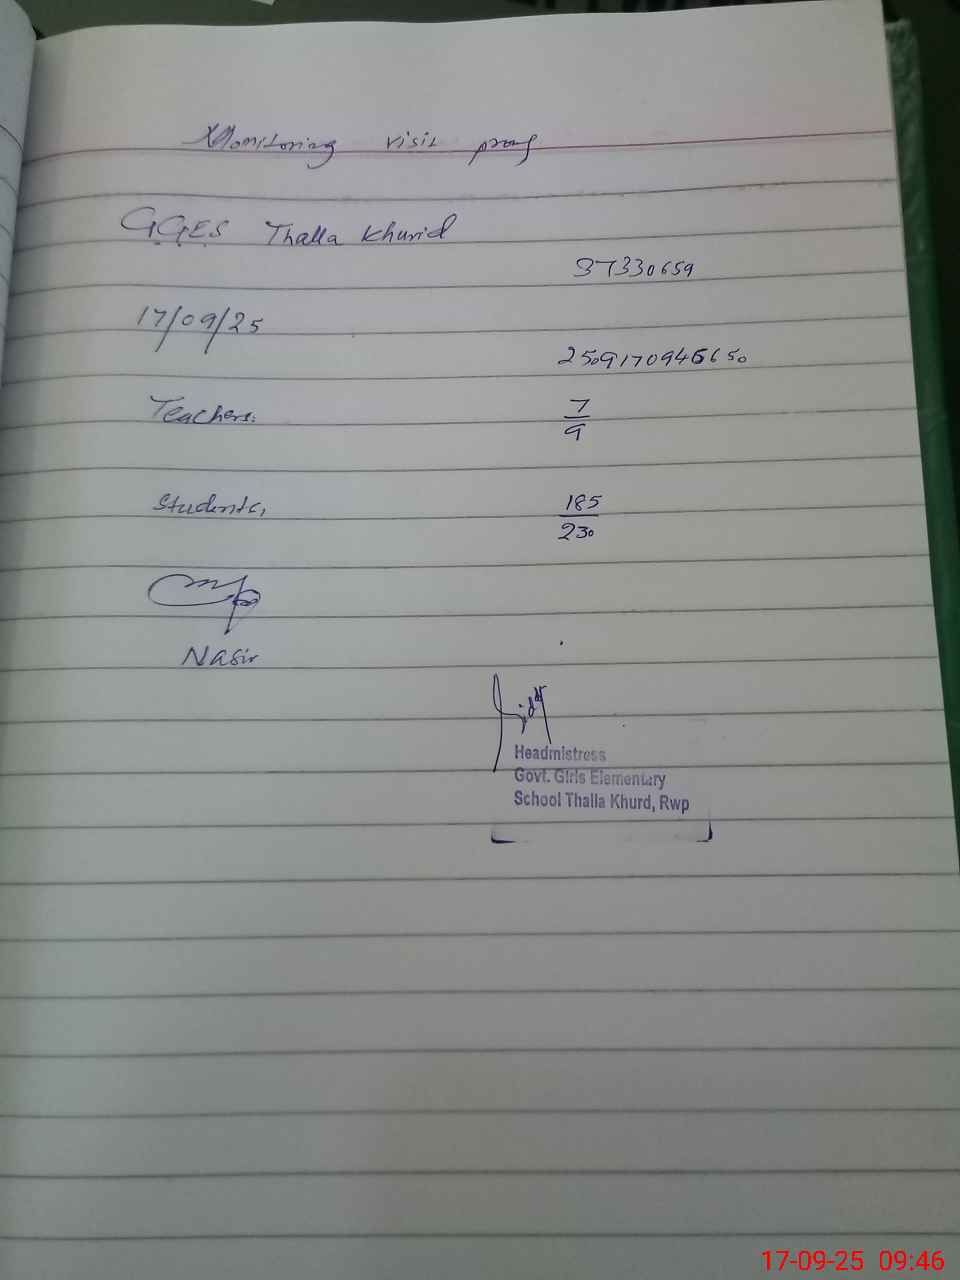 Monitoring visit proof
GGES Thalla Khurd
37330659
17/09/25
250917094650
Teachers:
7
9
Students,
185
230
Nasir
Headmistress
Govt. Girls Elementary
School Thalla Khurd, Rwp
17-09-25 09:46